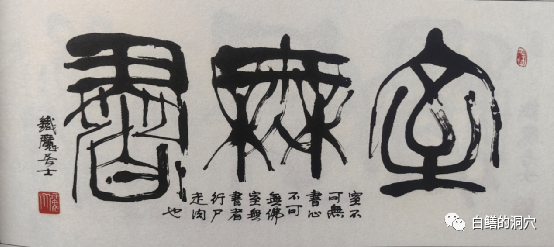 室無書
室不
可無
書心
不可
無佛
室無
書者
行尸
走肉
也
鐵魔居士
白鳝的洞穴